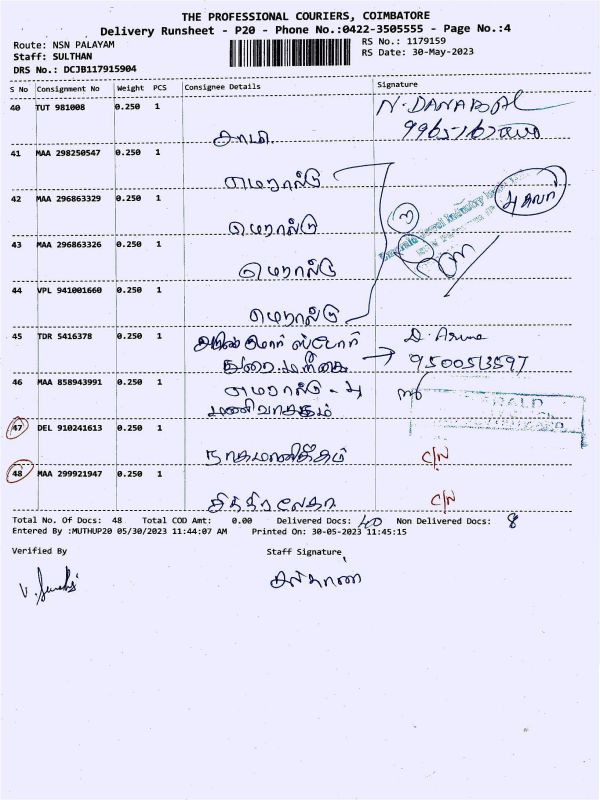 THE PROFESSIONAL COURIERS, COIMBATORE
Delivery Runsheet - P20 - Phone No.:0422-3505555 - Page No.:4
Route: NSN PALAYAM
RS No.: 1179159
Staff: SULTHAN
RS Date: 30-May-2023
DRS No.: DCJB117915904
S No Consignment No Weight PCS Consignee Details Signature
40 TUT 981008 0.250 1 N. DANABAL
சாமி
41 MAA 298250547 0.250 1
எமரால்டு
42 MAA 296863329 0.250 1
எமரால்டு
43 MAA 296863326 0.250 1
எமரால்டு
44 VPL 941001660 0.250 1
எமரால்டு
45 TDR 5416378 0.250 1 D. Aruna
துரை.மளிகை → 9500513597
46 MAA 858943991 0.250 1 எமரால்டு - அ
மணிவாசகம்
47 DEL 910241613 0.250 1
நாகமாணிக்கம் C/N
48 MAA 299921947 0.250 1
சித்திரலேகா C/N
Total No. Of Docs: 48 Total COD Amt: 0.00 Delivered Docs: 40 Non Delivered Docs: 8
Entered By :MUTHUP20 05/30/2023 11:44:07 AM Printed On: 30-05-2023 11:45:15
Verified By Staff Signature
சுல்தான்